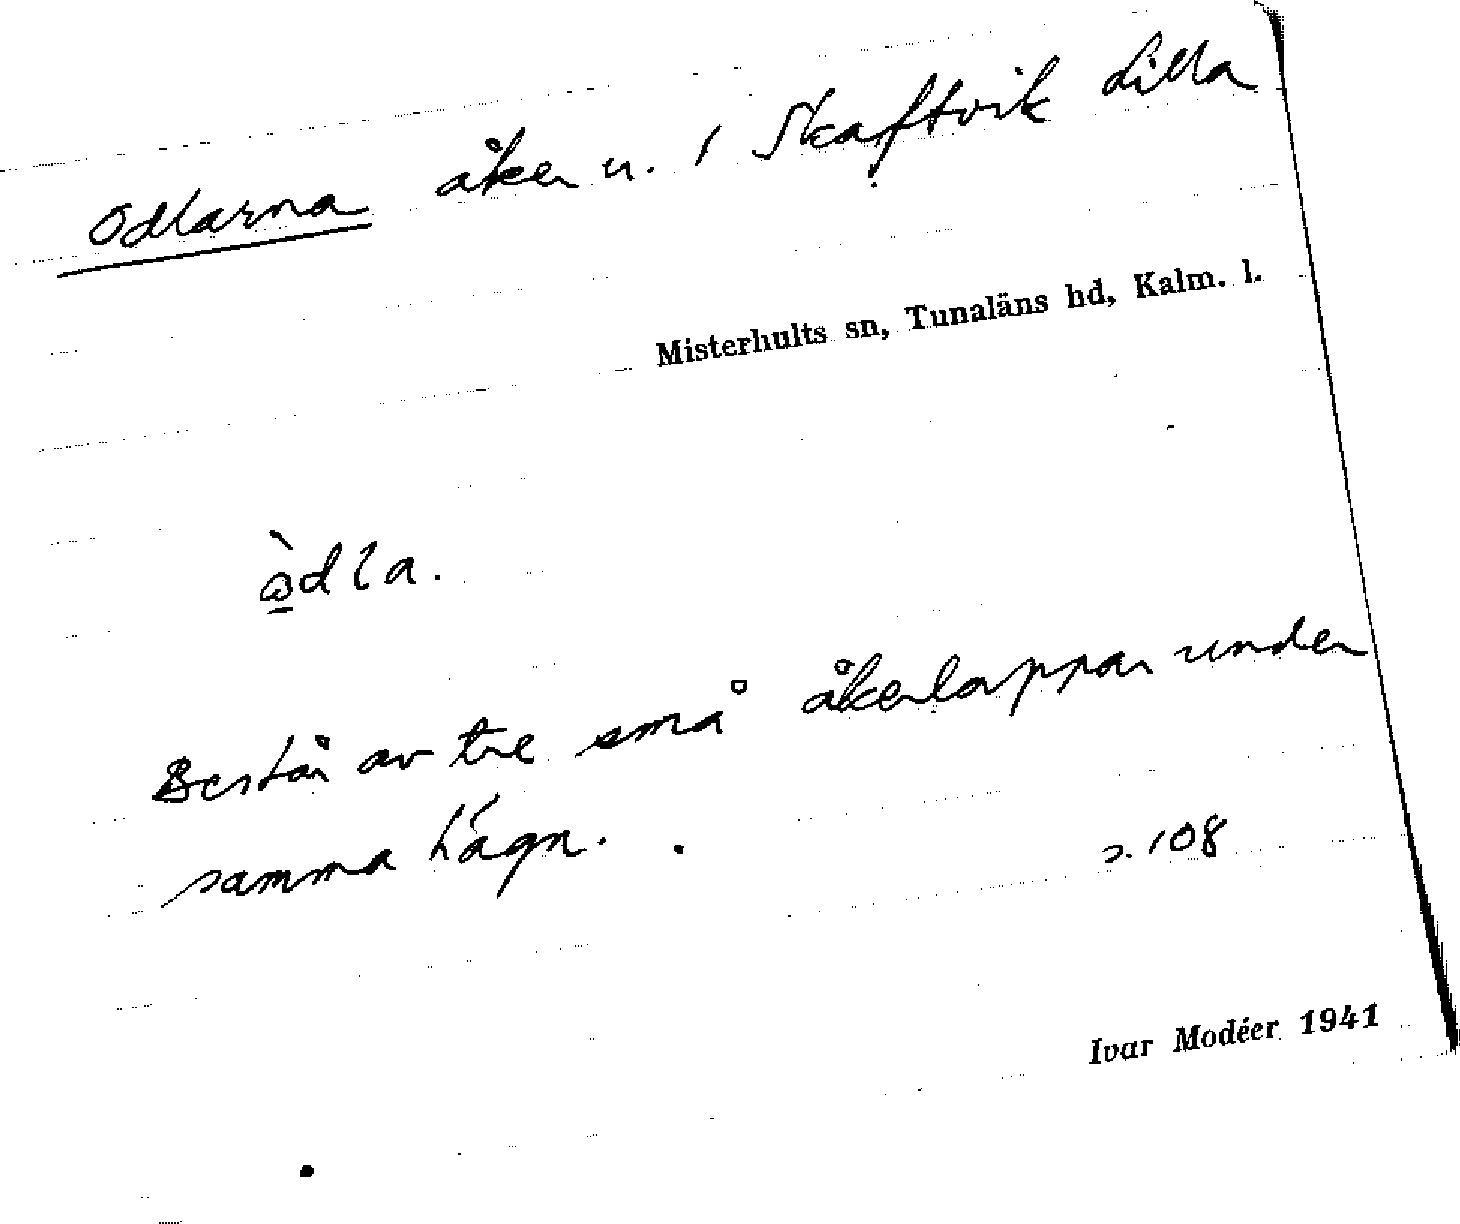 Odlarna åker u. / Skaftvik Lilla
Misterhults sn, Tunaläns hd, Kalm. l.
òdla.
Består av tre små åkerlappar under
samma hägn.
s. 108
Ivar Modéer 1941